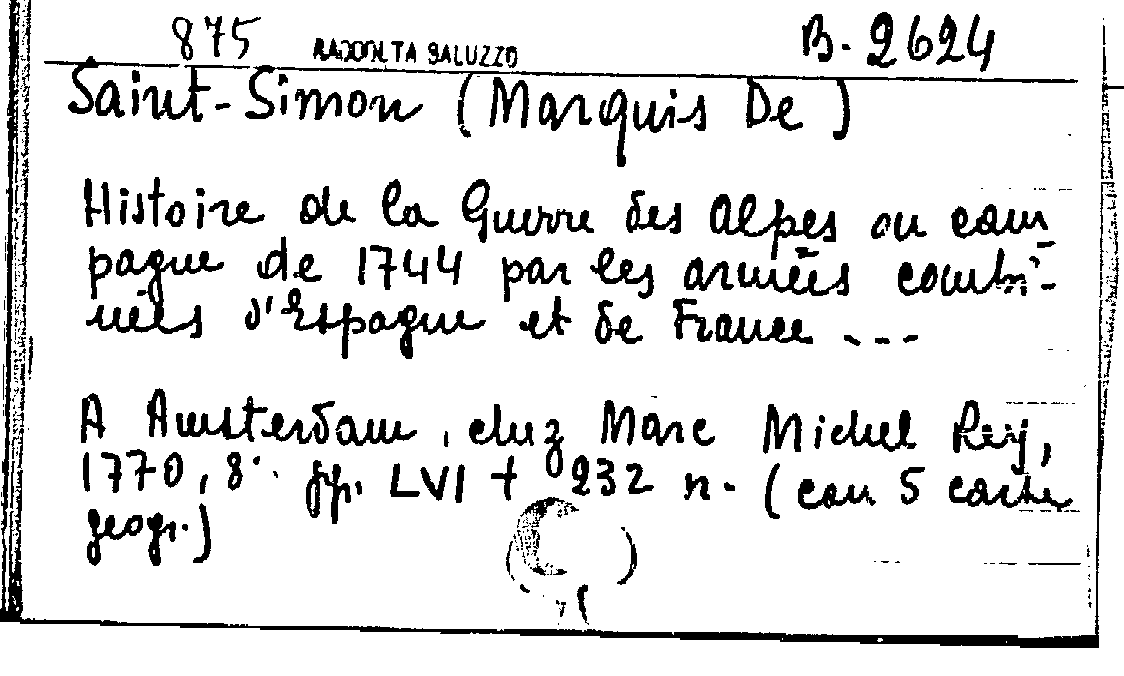 875 RACCOLTA SALUZZO B. 2624
Saint-Simon (Marquis De)
Histoire de la Guerre des Alpes ou cam
pagne de 1744 par les armées combi-
nées d'Espagne et de France ---
A Amsterdam, chez Marc Michel Rey,
1770, 8°. pp. LVI + 232 n. (con 5 carte
geogr.)